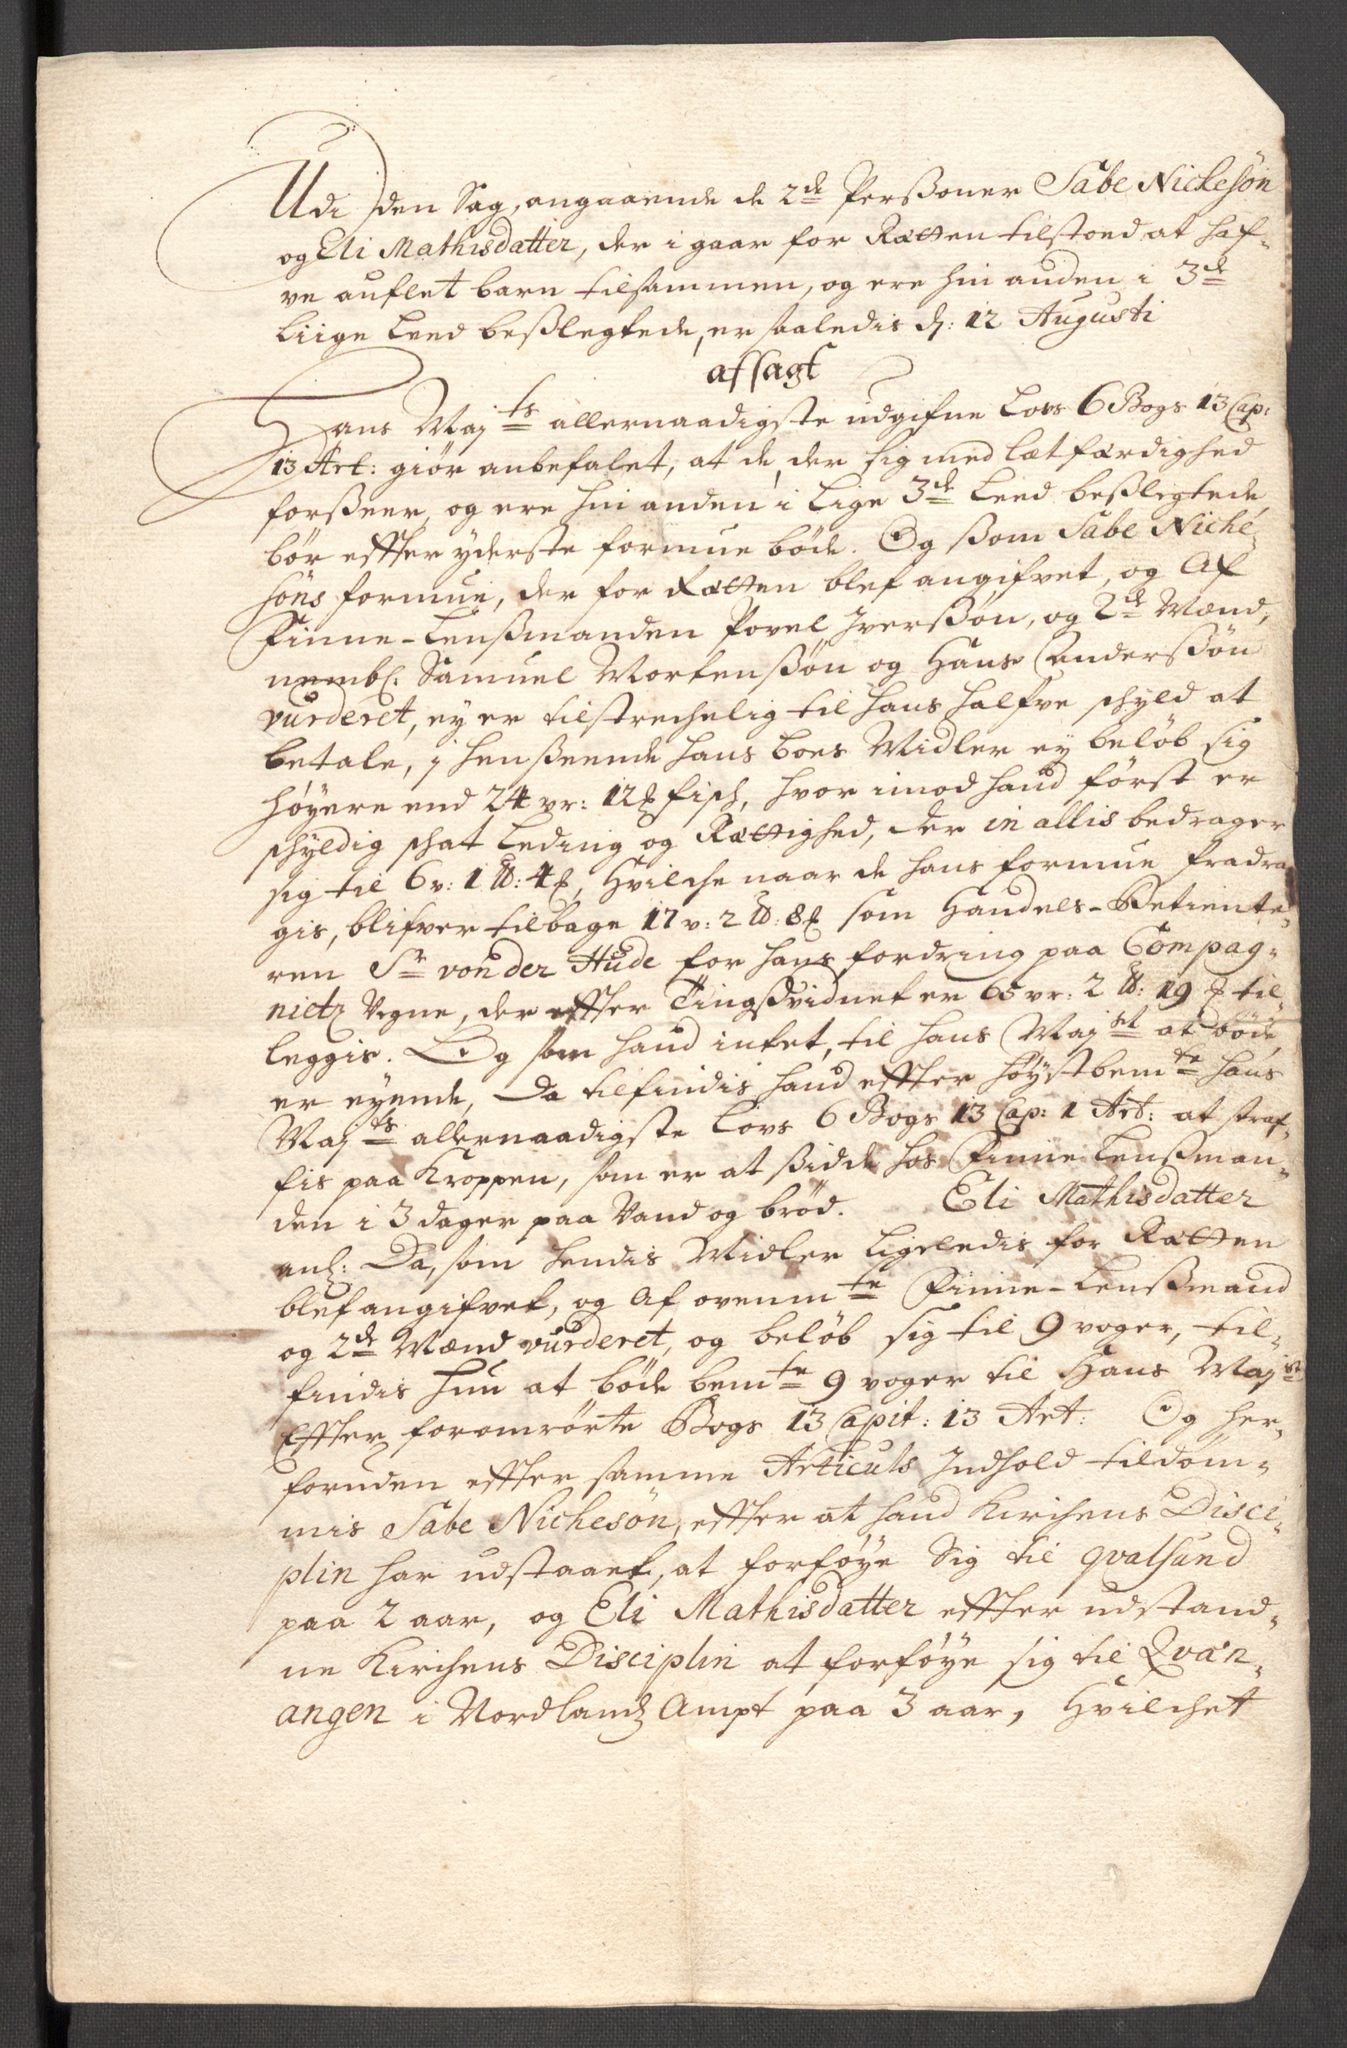 Udi den Sag, angaaende de 2de Perßoner Sabe Nickesön
og Eli Mathisdatter, der i gaar for Rætten tilstoed at haf-
ve auflet barn tilsammen, og ere hin anden i 3de
Liige Leed beßlegtede, er saaledis d: 12 Augusti
afsagt
Hans Majts allernaadigste udgifne Lovs 6 Bogs 13 Cap:
13 Art: giör anbefalet, at de, der sig med Lætfærdighed
forßeer, og ere hin anden i Lige 3de Leed beßlegtede
bör effter yderste formue böde. Og ßom Sabe Niche-
söns formue, der for Rætten blef angifvet, og Af
Finne-Lenßmanden Povel Iverßön, og 2de Mænd,
nembl. Samuel Mortenßön og Hans Anderßön
vurderet, ey er tilstrechelig til hans halfve schyld at
betale, i henßeende hans boes Midler ey belöb sig
höyere end 24 vr: 12 fisch, hvor imod hand först er
schyldig schat Leding og Rættighed, der in allis bedrager
sig til 6 v: 1 : 4, Hvilche naar de hans formue fradra
gis, blifver tilbage 17 v: 2 : 8 som Handels-Betiente-
ren Sr von der Hude for hans fordring paa Compag-
nietz Vegne, der effter Tingßvidnet er 65 vr: 2 : 19 til-
leggis. Og som hand intet, til hans Majst at böde
er eyende, Da tilfindis hand effter höystbemte hans
Majts allernaadigste Lovs 6 Bogs 13 Cap: 1 Art: at straf-
fis paa Kroppen, som er at ßidde hos Finne Lenßman-
den i 3 dager paa Vand og bröd. Eli Mathisdatter
anl: Da, som hendis Midler Ligeledis for Rætten
blef angifvet, og Af ovenmte Finne-Lenßmand
og 2de Mænd vurderet, og belöb sig til 9 voger, til-
findis hun at böde bemte 9 voger til Hans Majst
Effter foromrörte Bogs 13 Capit: 13 Art: Og her-
foruden effter samme Articuls Indhold tildöm-
mis Sabe Nichesön, effter at hand Kirchens Disci-
plin har udstaaet, at forföye Sig til qvalsund
paa 2 aar, og Eli Mathisdatter effter udstand-
ne Kirchens Disciplin at forföye sig til Qvæn-
angen i Nordlands Ampt paa 3 aar, Hvilchet